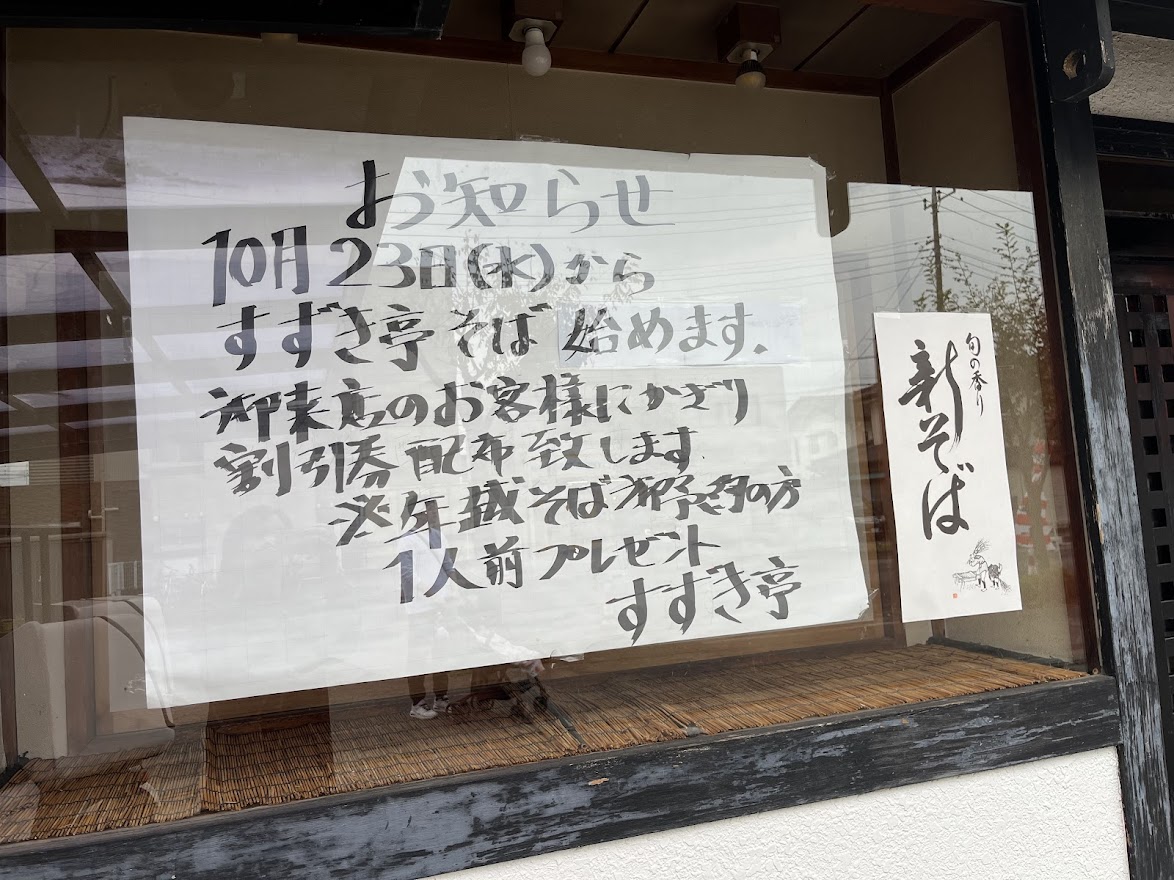 お知らせ
10月23日(水)から
すずき亭そば始めます.
御来店のお客様にかぎり
割引券配布致します.
※年越そば御予約の方
1人前プレゼント
すずき亭
旬の香り
新そば